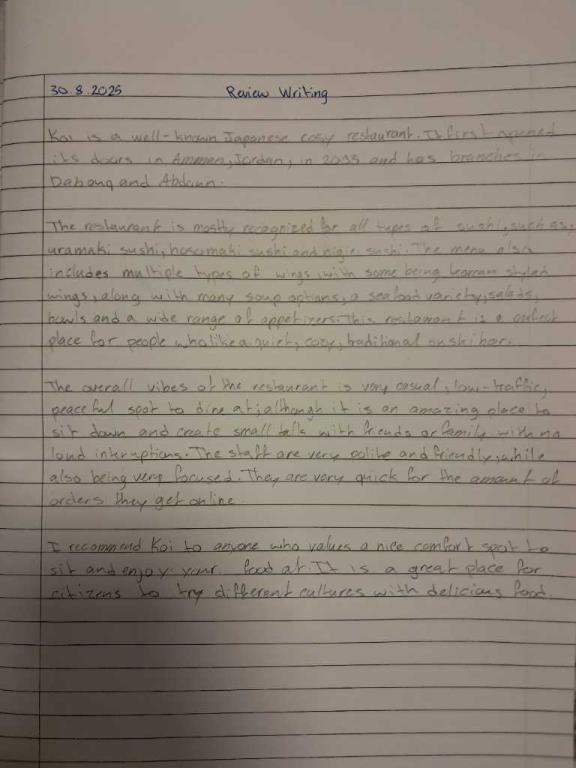 30.8.2025 Review Writing
Koi is a well-known Japanese cosy restaurant. It first opened
its doors in Amman, Jordan, in and has branches in
Dabouq and Abdoun.
The restaurant is mostly recognized for all types of sushi, such as,
uramaki sushi, hosomaki sushi and sushi. The menu also
includes multiple types of wings, with some being korean styled
wings, along with many soup options, a seafood variety, salads,
bowls and a wide range of appetizers. This restaurant is a perfect
place for people who like a quiet, cozy, traditional sushi bar.
The overall vibes of the restaurant is very casual, low-traffic,
peaceful spot to dine at; although it is an amazing place to
sit down and create small talk with friends or family with no
loud interuptions. The staff are very polite and friendly, while
also being very focused. They are very quick for the amount of
orders they get online.
I recommend Koi to anyone who values a nice comfort spot to
sit and enjoy your food at. It is a great place for
citizens to try different cultures with delicious food.